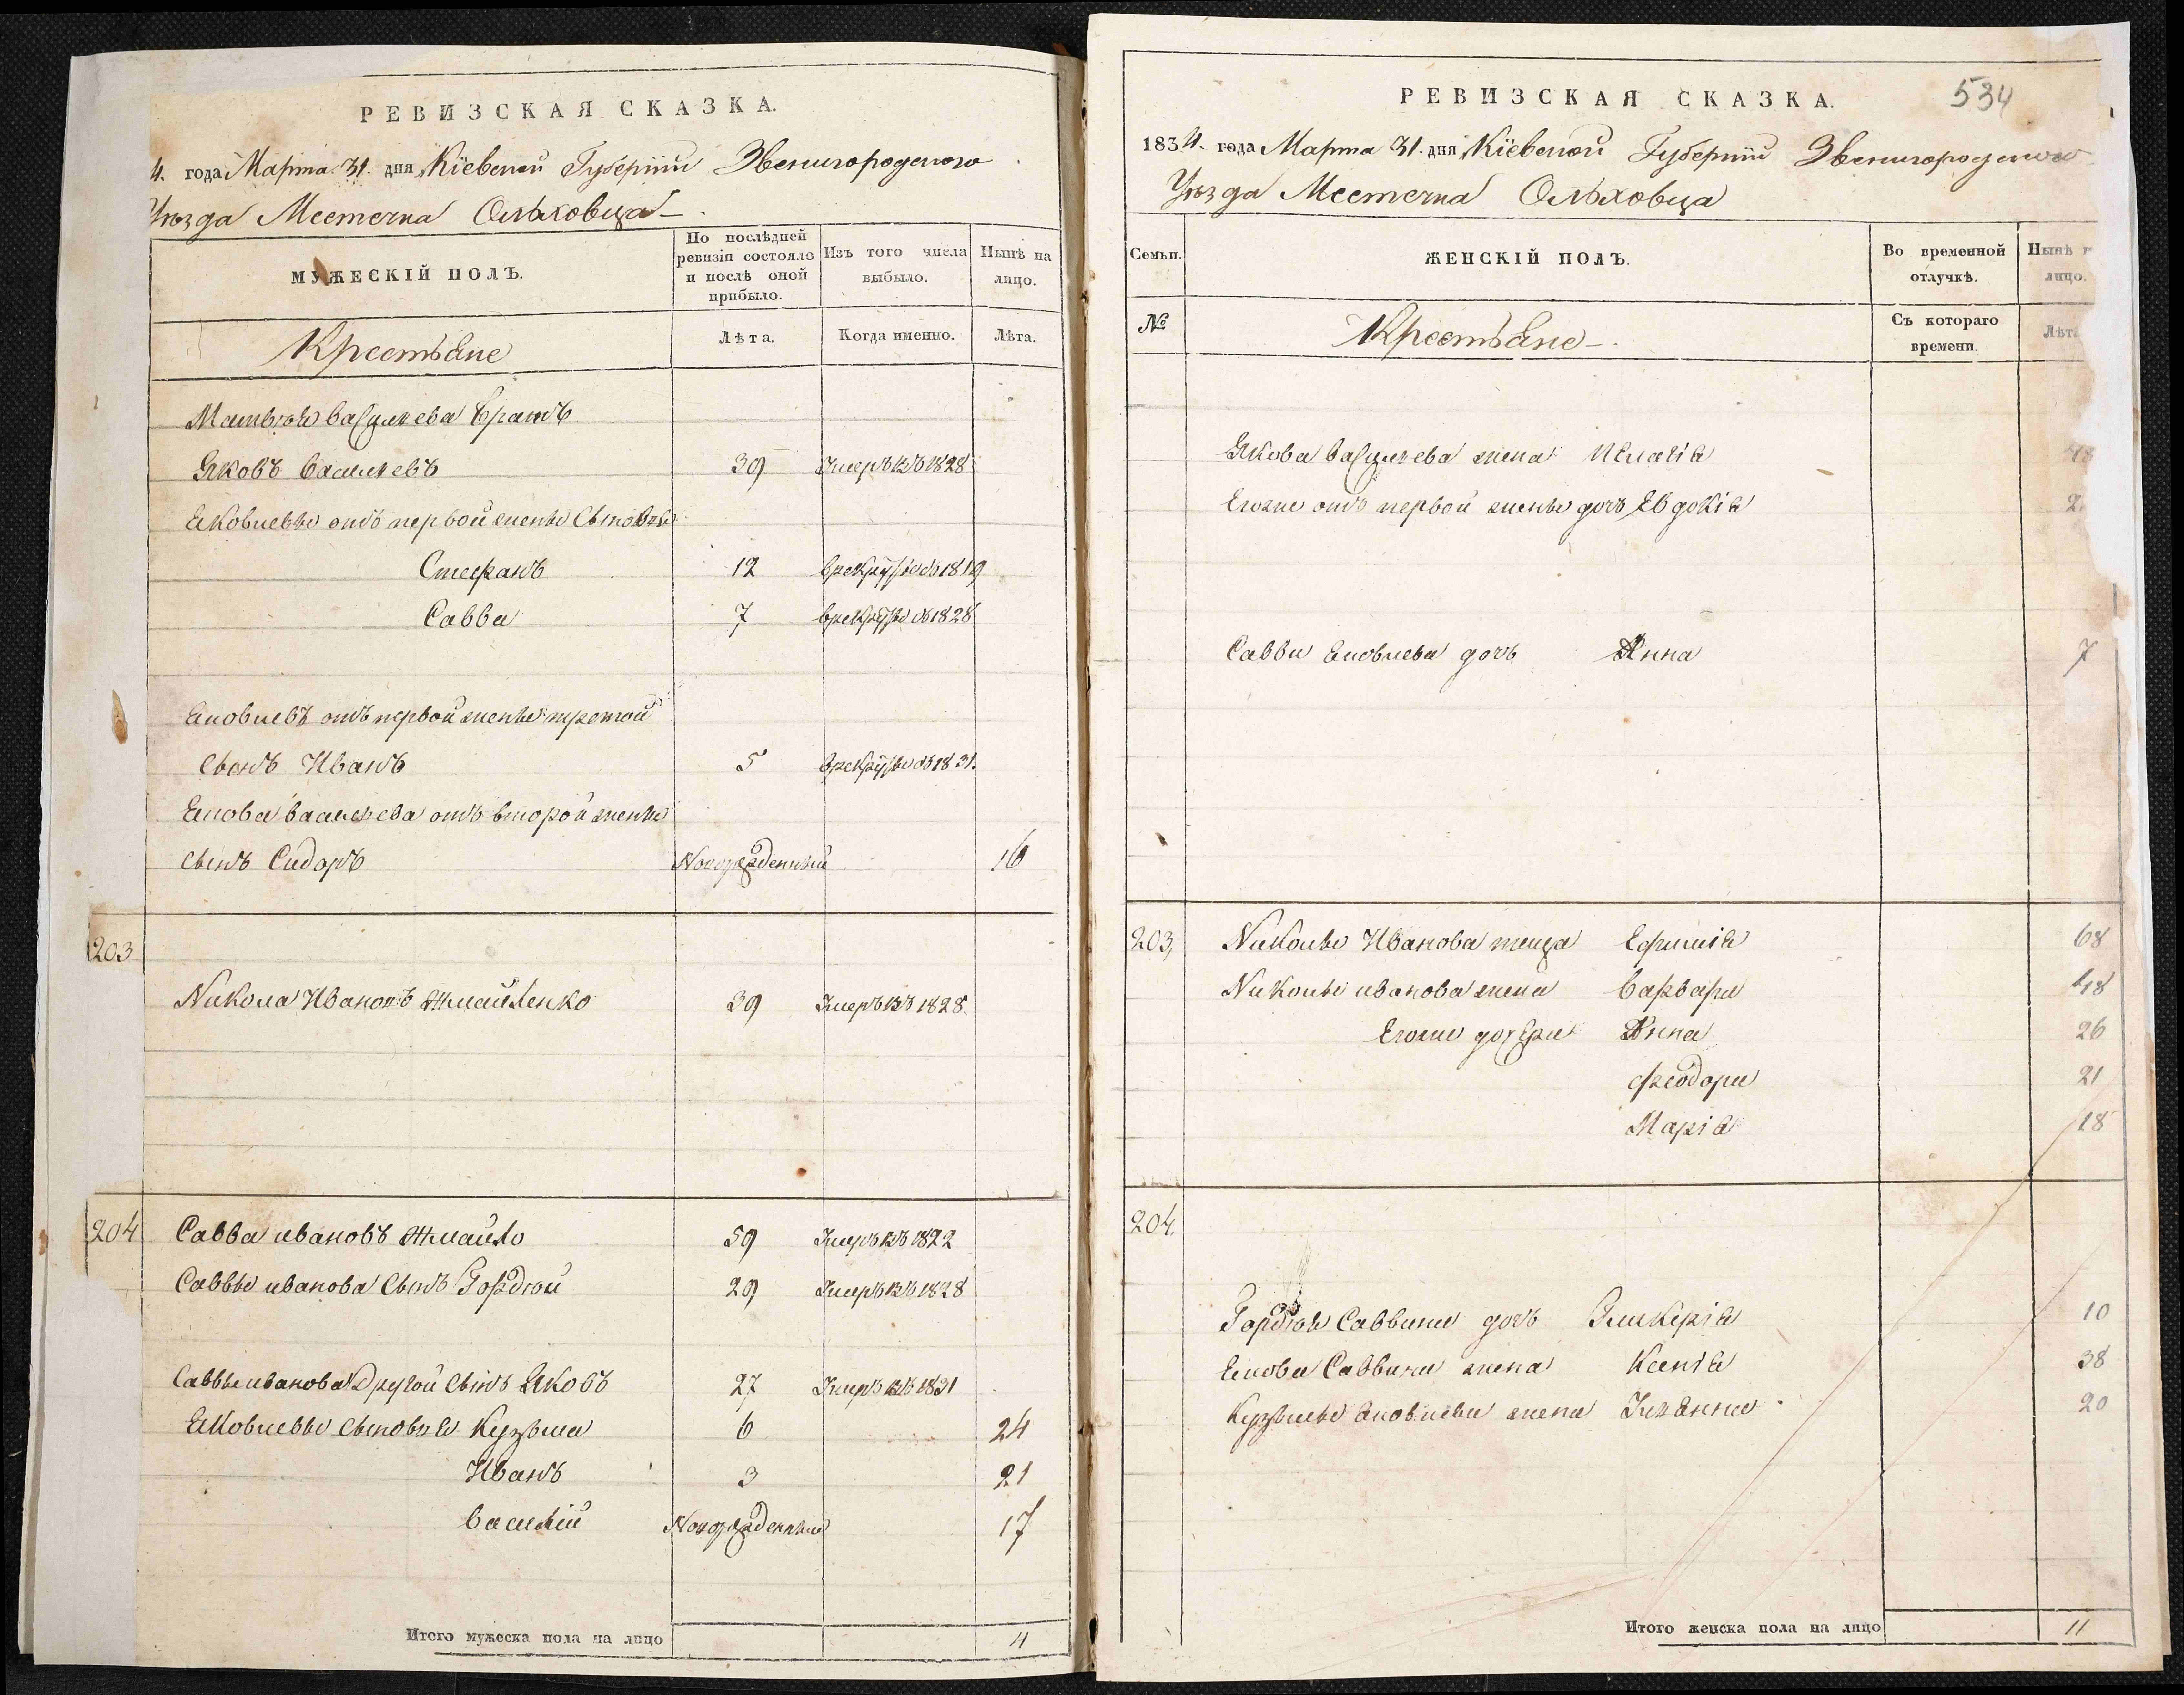 РЕВИЗСКАЯ СКАЗКА.
4. года Марта 31. дня Кіевской Губерніи Звенигородского
Уѣзда Местечка Ольховца
МУЖЕСКІЙ ПОЛЪ.
По послѣдней ревизіи состояло и послѣ оной прибыло.
Изъ того числа выбыло.
Нынѣ на лицо.
Крестьяне
Лѣта.
Когда именно.
Лѣта.
Матвѣя Васильева братъ
Яковъ Васильевъ 39 Умеръ въ 1828
Яковлевы отъ первой жены сыновья
Стефанъ 12 в рекруты въ 1819
Савва 7 в рекруты въ 1828
Яковлевъ отъ первой жены третой
сынъ Иванъ 5 в рекруты въ 1831.
Якова Васильева отъ второй жены
сынъ Сидоръ Новорожденный 16
203
Никола Ивановъ Жмайленко 39 Умеръ въ 1828.
204 Савва ивановъ Жмайло 59 Умеръ въ 1822
Саввы иванова сынъ Гордѣй 29 Умеръ въ 1828
Саввы иванова Другой сынъ Яковъ 27 Умеръ въ 1831
Яковлевы сыновья Кузьма 6 24
Иванъ 3 21
Василій Новорожденный 17
Итого мужеска пола на лицо 4
РЕВИЗСКАЯ СКАЗКА. 534
1834. года Марта 31. дня Кіевской Губерніи Звенигородского
Уѣзда Местечка Ольховца
Семьи.
ЖЕНСКІЙ ПОЛЪ.
Во временной отлучкѣ.
Нынѣ
лицо.
№
Крестьяне
Съ котораго времени.
Якова Васильева жена
Егоже отъ первой жены дочь Евдокія
Саввы Яковлева дочь Анна 7
203, Николы Иванова теща Ефимія 68
Николы иванова жена Варвара 48
Егоже дочери Анна 26
Феодора 21
Марія 18
204.
Гордѣя Саввина дочь Гликерія 10
Якова Саввина жена Ксенія 38
Кузьмы Яковлева жена Ульянна 20
Итого женска пола на лицо 11